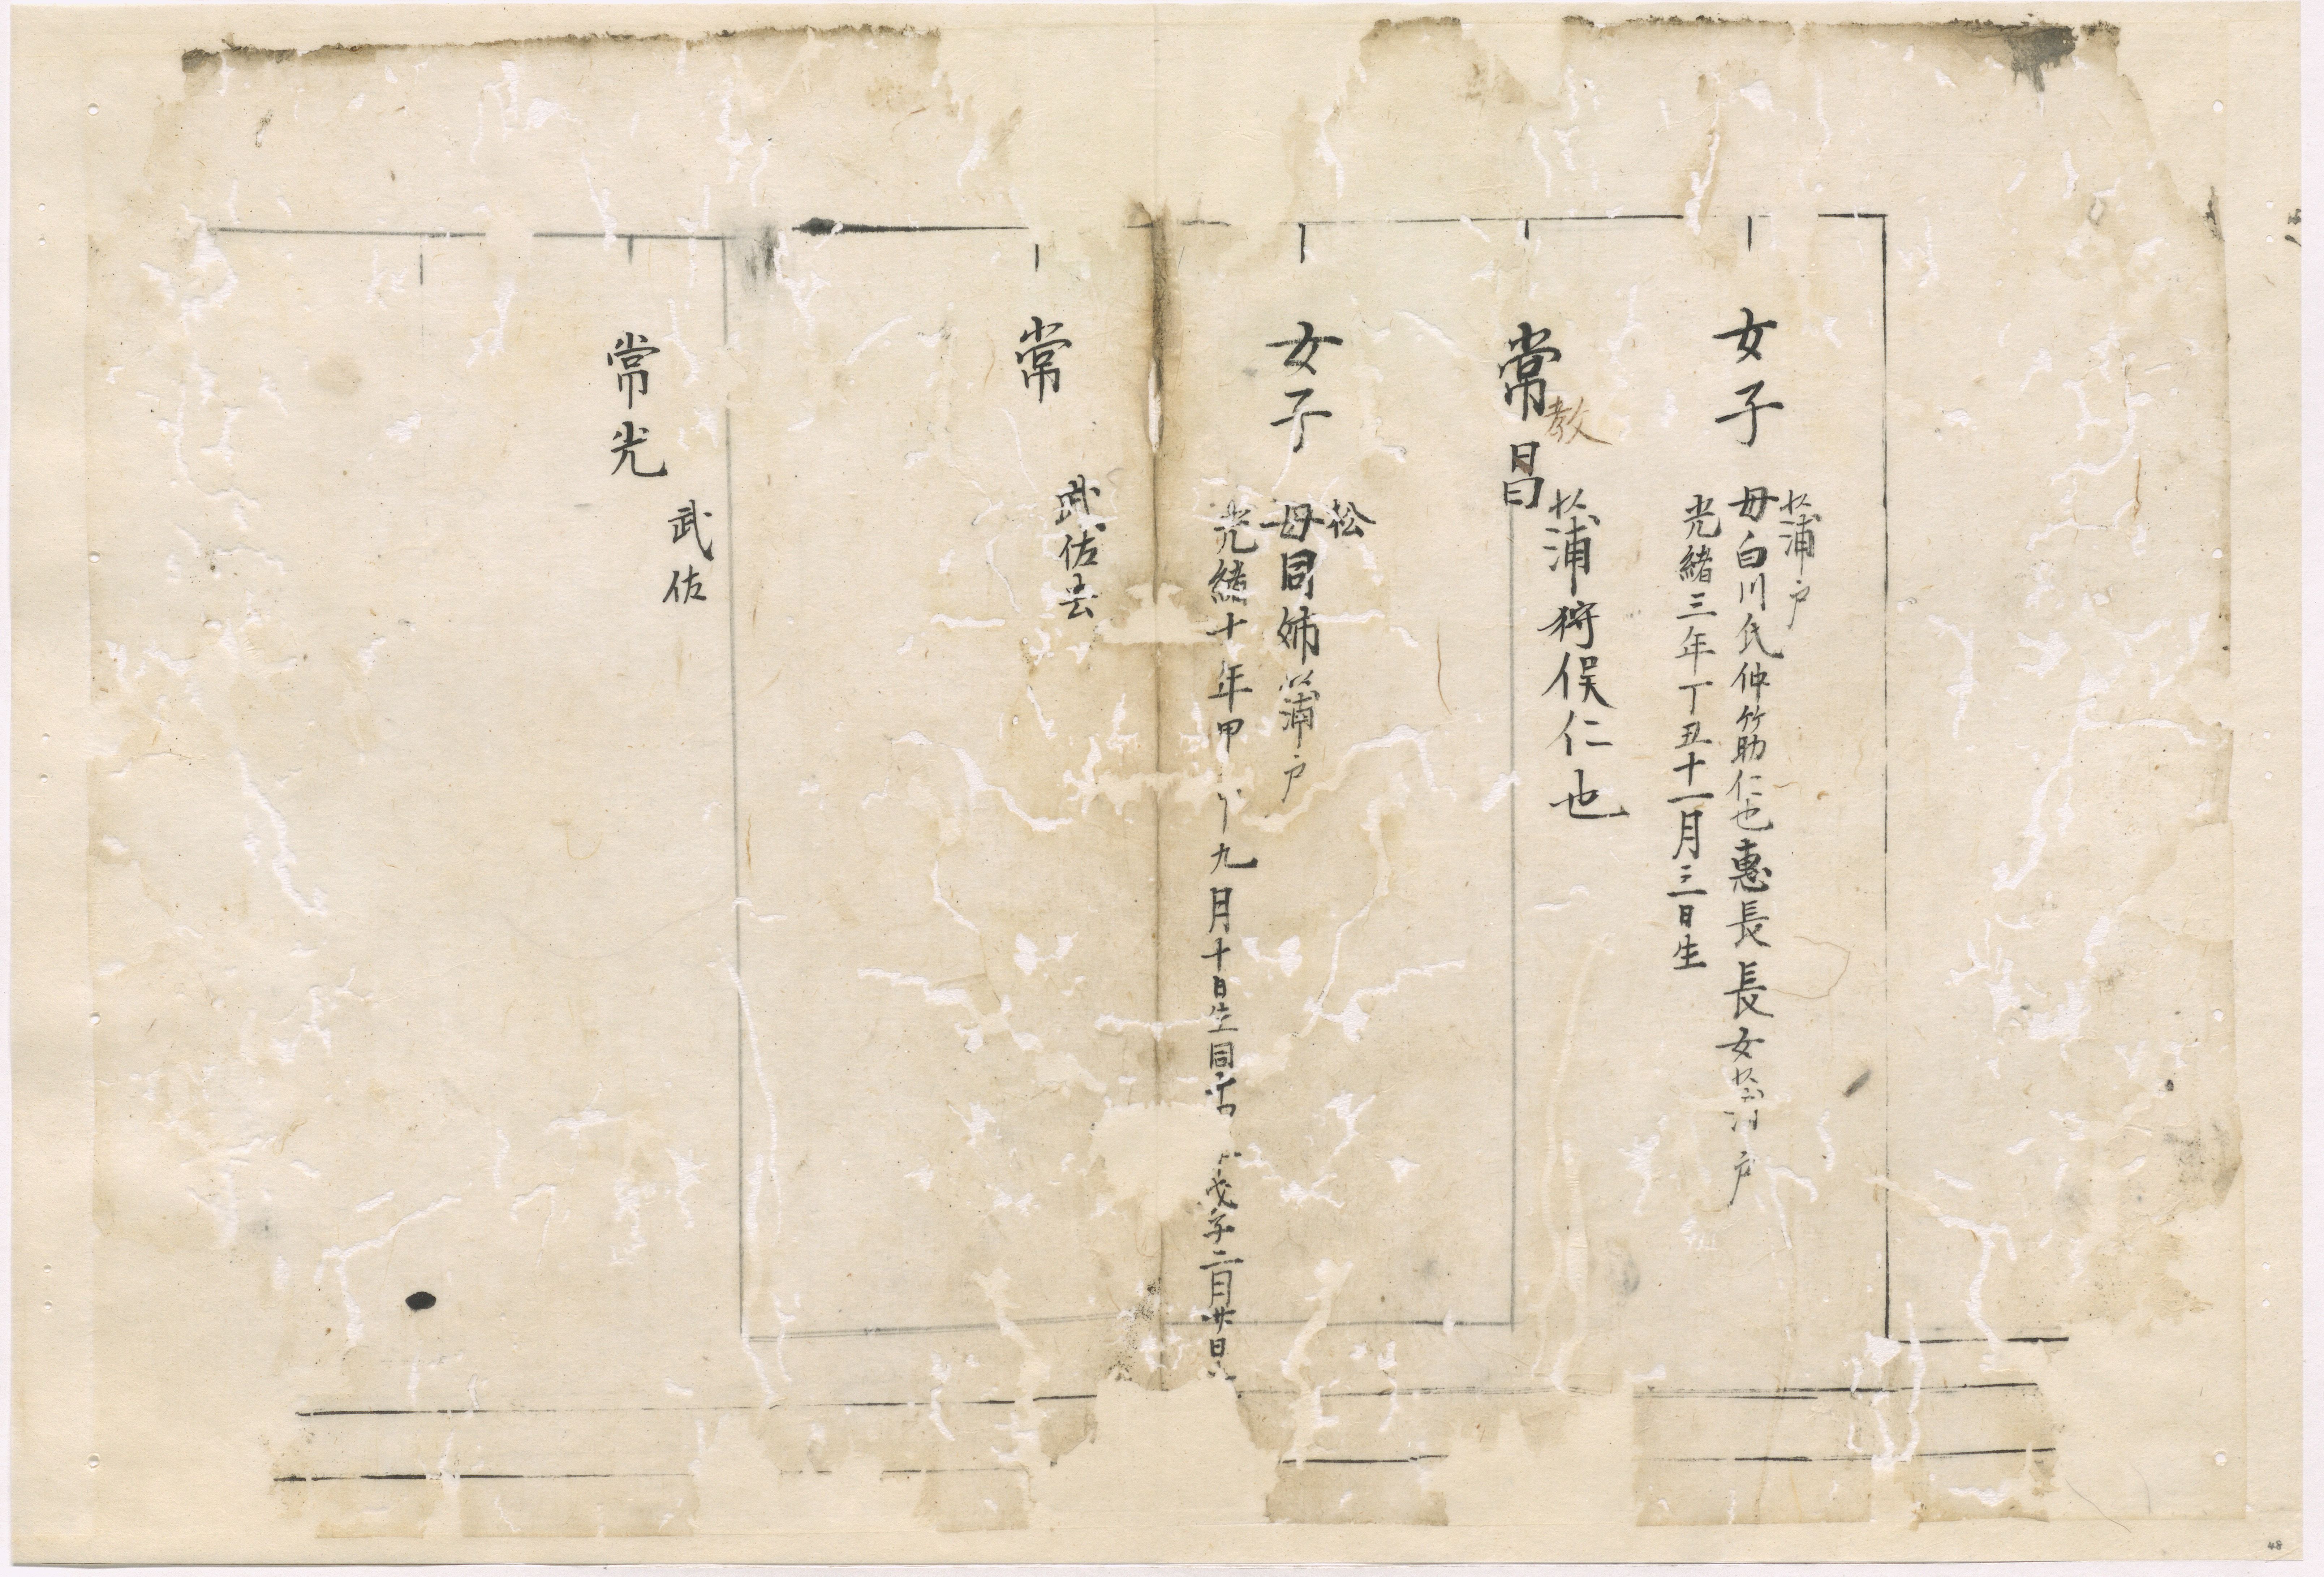 女子
蒲戸
母白川氏仲筋仁也惠長長女 戸
光緒三年丁丑十一月三日生
常昌
教
蒲狩俣仁也
女子
松
母同姉蒲戸
光緒十年甲 九月十日生同 戊子二月廿日
常
武佐
常光
武佐
48